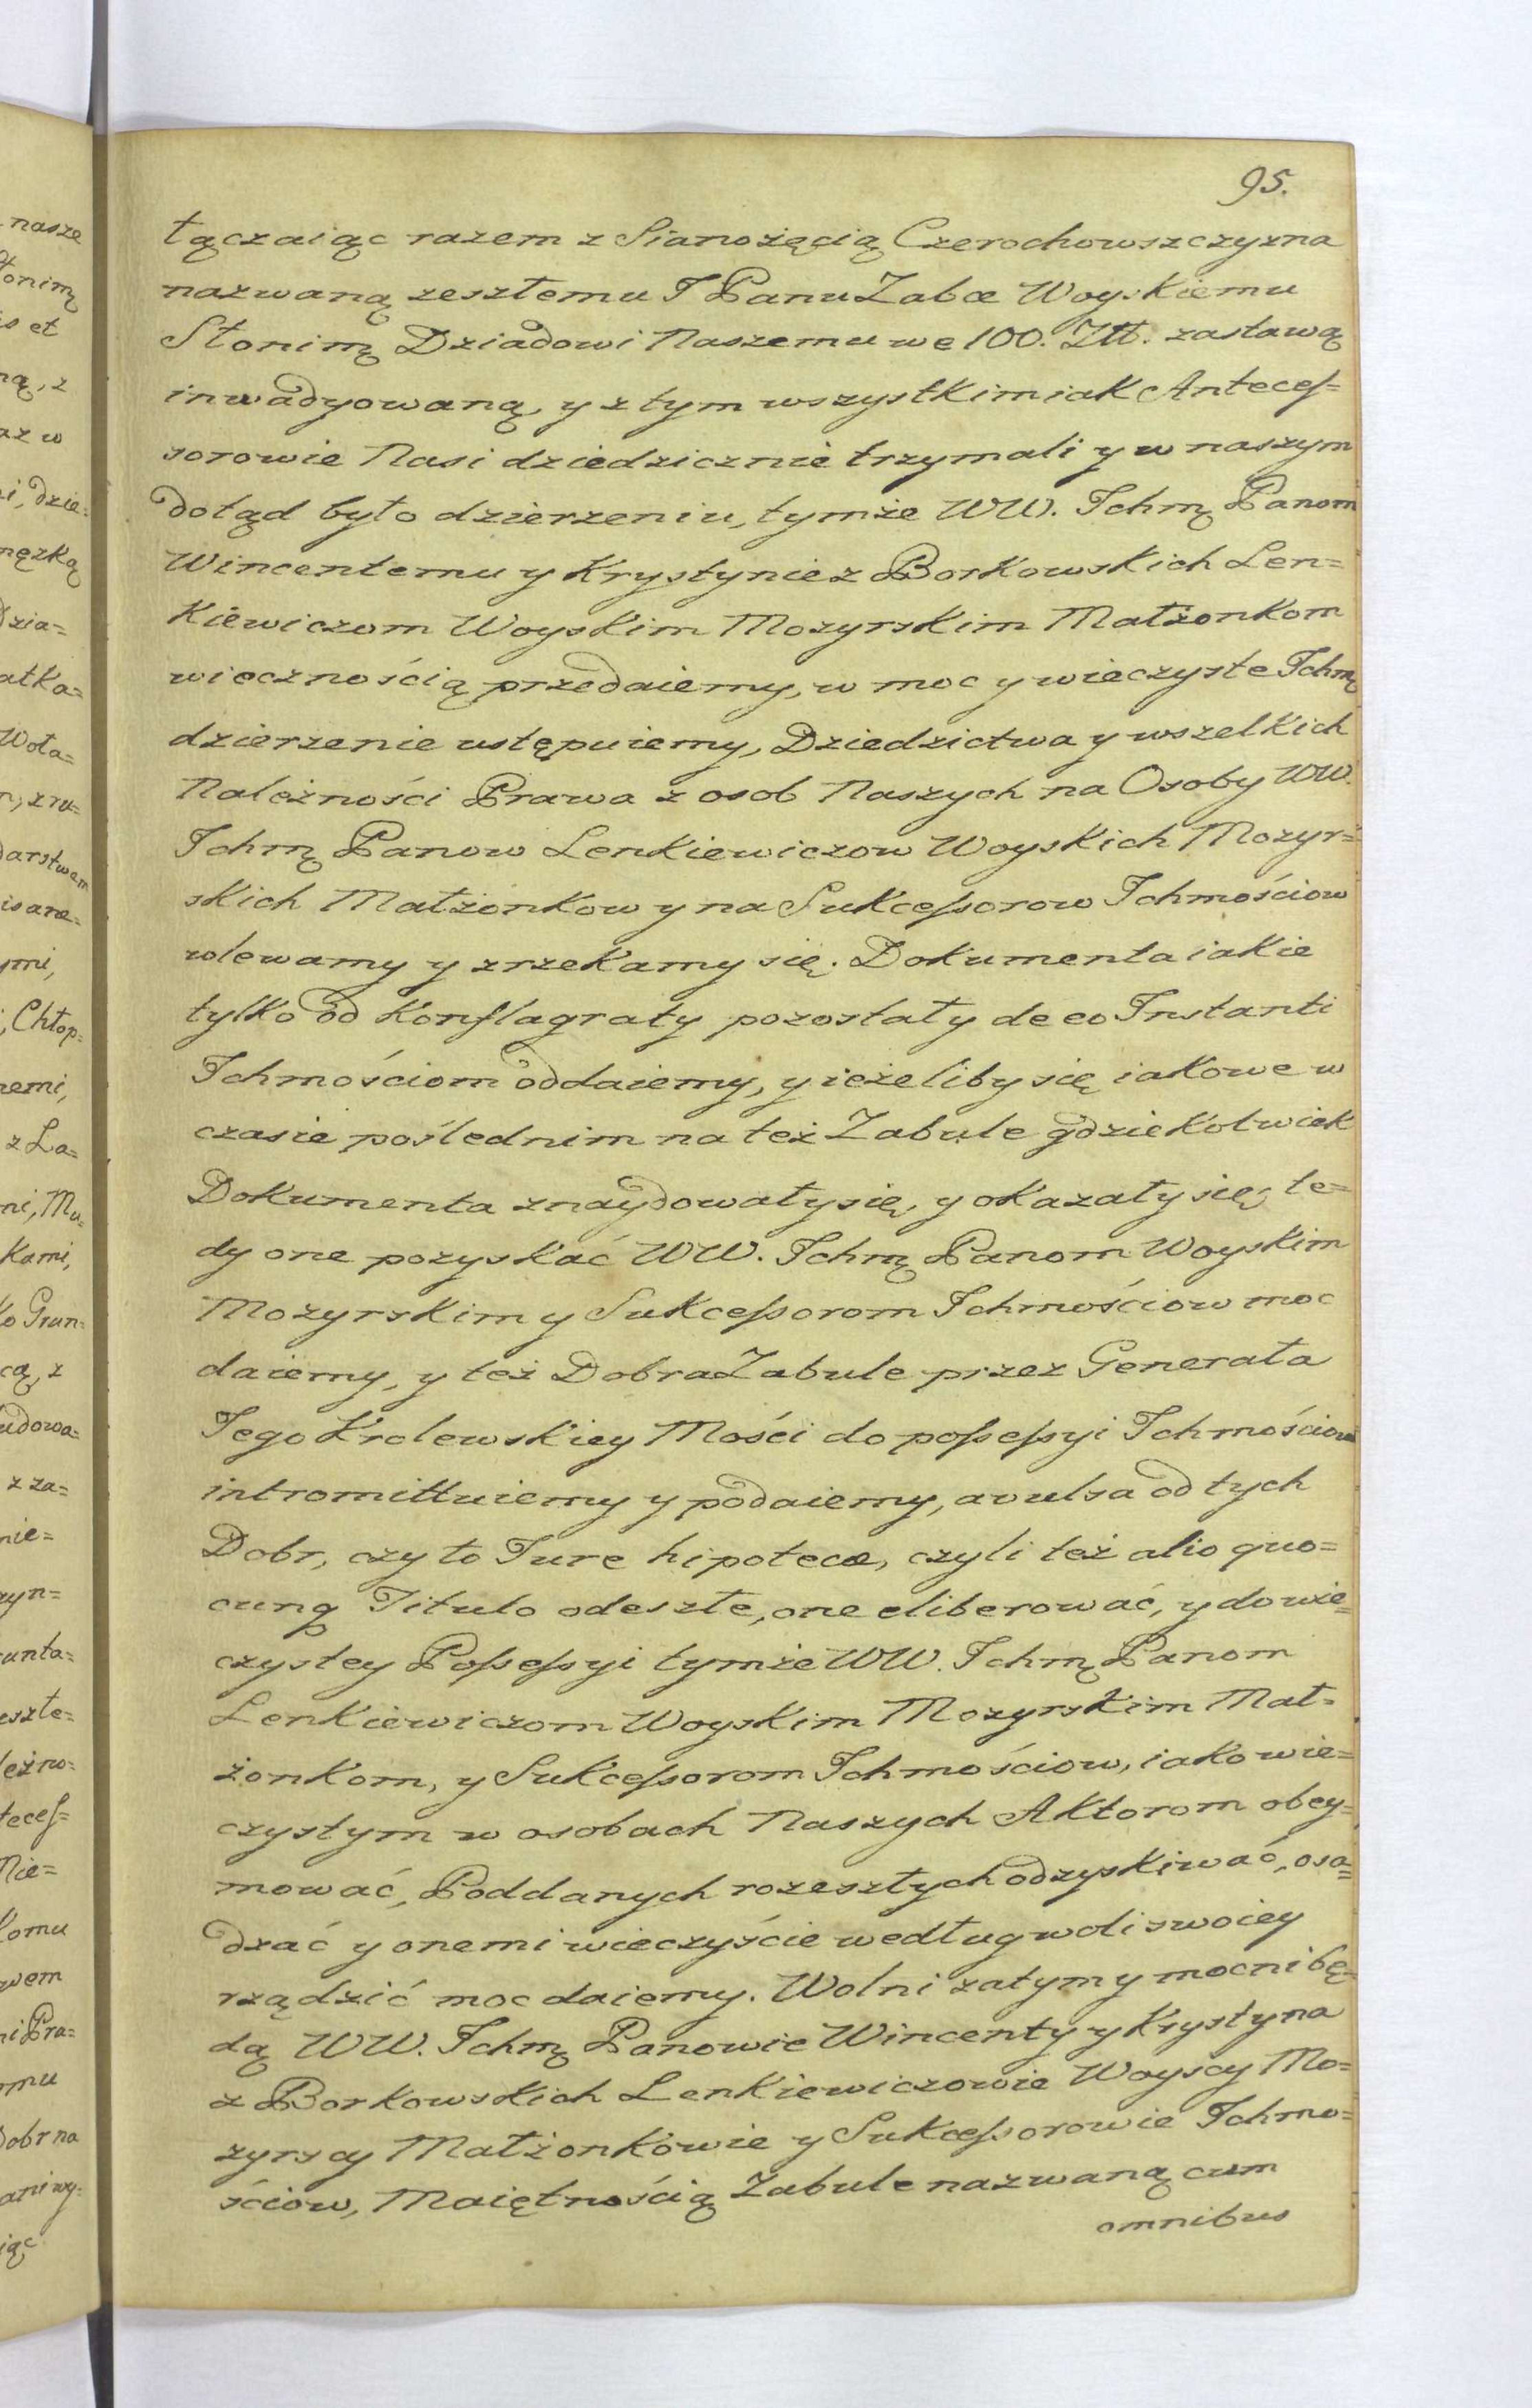 95.
łączaiąc razem z Sianożęcią Czerochowszczyzna
nazwaną zeszłemu J Panu Zabæ Woyskiemu
Słonimą Dziadowi Naszemu we 100. Złł. zastawą
inwadyowaną, y z tym wszystkim iak Anteceſ=
sorowie Nasi dziedzicznie trzymali y w naszym
dotąd było dzierzeniu, tymże WW. Ichmą Panom
Wincentemu y Krystynie z Borkowskich Len=
Kiewiczom Woyskim Mozyrskim Małżonkom
wiecznością przedaiemy, w moc y wieczyste Ichmą
dzierzenie ustępuiemy, Dziedzictwa y wszelkich
Należności Prawa z osob Naszych na Osoby WW.
Ichmą Panow Lenkiewiczow Woyskich Mozyr=
skich Małżonkow y na Sukceſsorow Ichmościow
wlewamy y zrzekamy się. Dokumenta iakie
tylko od Konflagraty pozostały de eo Instanti
Ichmościom oddaiemy, y ieżeliby się iakowe w
czasie poślednim na też Zabule gdziekolwiek
Dokumenta znaydowały się, y okazały się, te=
dy one pozyskać WW. Ichmą Panom Woyskim
Mozyrskim y Sukceſsorom Ichmościow moc
daiemy, y też Dobra Zabule przez Generała
Jego Krolewskiey Mości do poſseſsyi Ichmościom
intromittuiemy y podaiemy, avulsa od tych
Dobr, czy to Jure hipotecæ, czyli też alio quo=
cunq Titulo odeszłe, one eliberować, y do wie=
czystey Poſseſsyi tymże WW. Ichmą Panom
Lenkiewiczom Woyskim Mozyrskim Mał=
żonkom, y Sukceſsorom Ichmościow, iako wie=
czystym w osobach Naszych Aktorom obey=
mować, Poddanych rozeszłych odzyskiwać, osa=
dzać y onemi wieczyście według woli swoiey
rządzić moc daiemy. Wolni zatym y mocni bę=
dą WW. Ichmą Panowie Wincenty y Krystyna
z Borkowskich Lenkiewiczowie Woyscy Mo=
zyrscy Małżonkowie y Sukceſsorowie Ichmo=
ściow, Maiętnością Zabule nazwaną cum
omnibus